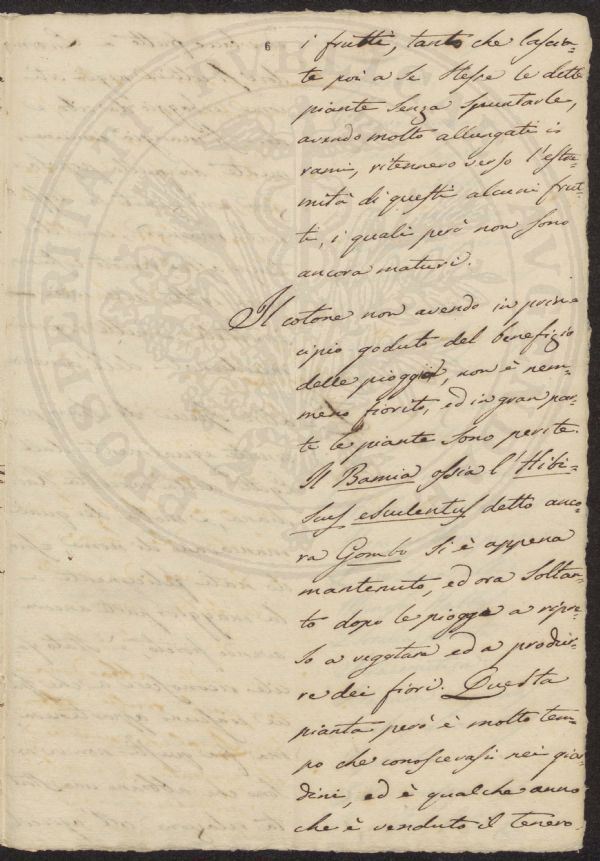 6
i frutti, tanto che lascia-
te poi a se stesse le dette
piante senza spuntarle,
avendo molto allungati i
rami, ritennero verso l'estre-
mità di questi alcuni frut-
ti, i quali però non sono
ancora maturi.
Il cotone non avendo in prin-
cipio goduto del benefizio
delle pioggie, non è nem-
meno fiorito, ed in gran par-
te le piante sono perite.
Il Bamia ossia l'Hibi-
scus esculentus detto anco-
ra Gombo si è appena
mantenuto, ed ora soltan-
to dopo le piogge a ripre-
so a vegetare ed a produr-
re dei fiori. Questa
pianta però è molto tem-
po che conoscevasi nei giar-
dini, ed è qualche anno
che è venduto il tenero